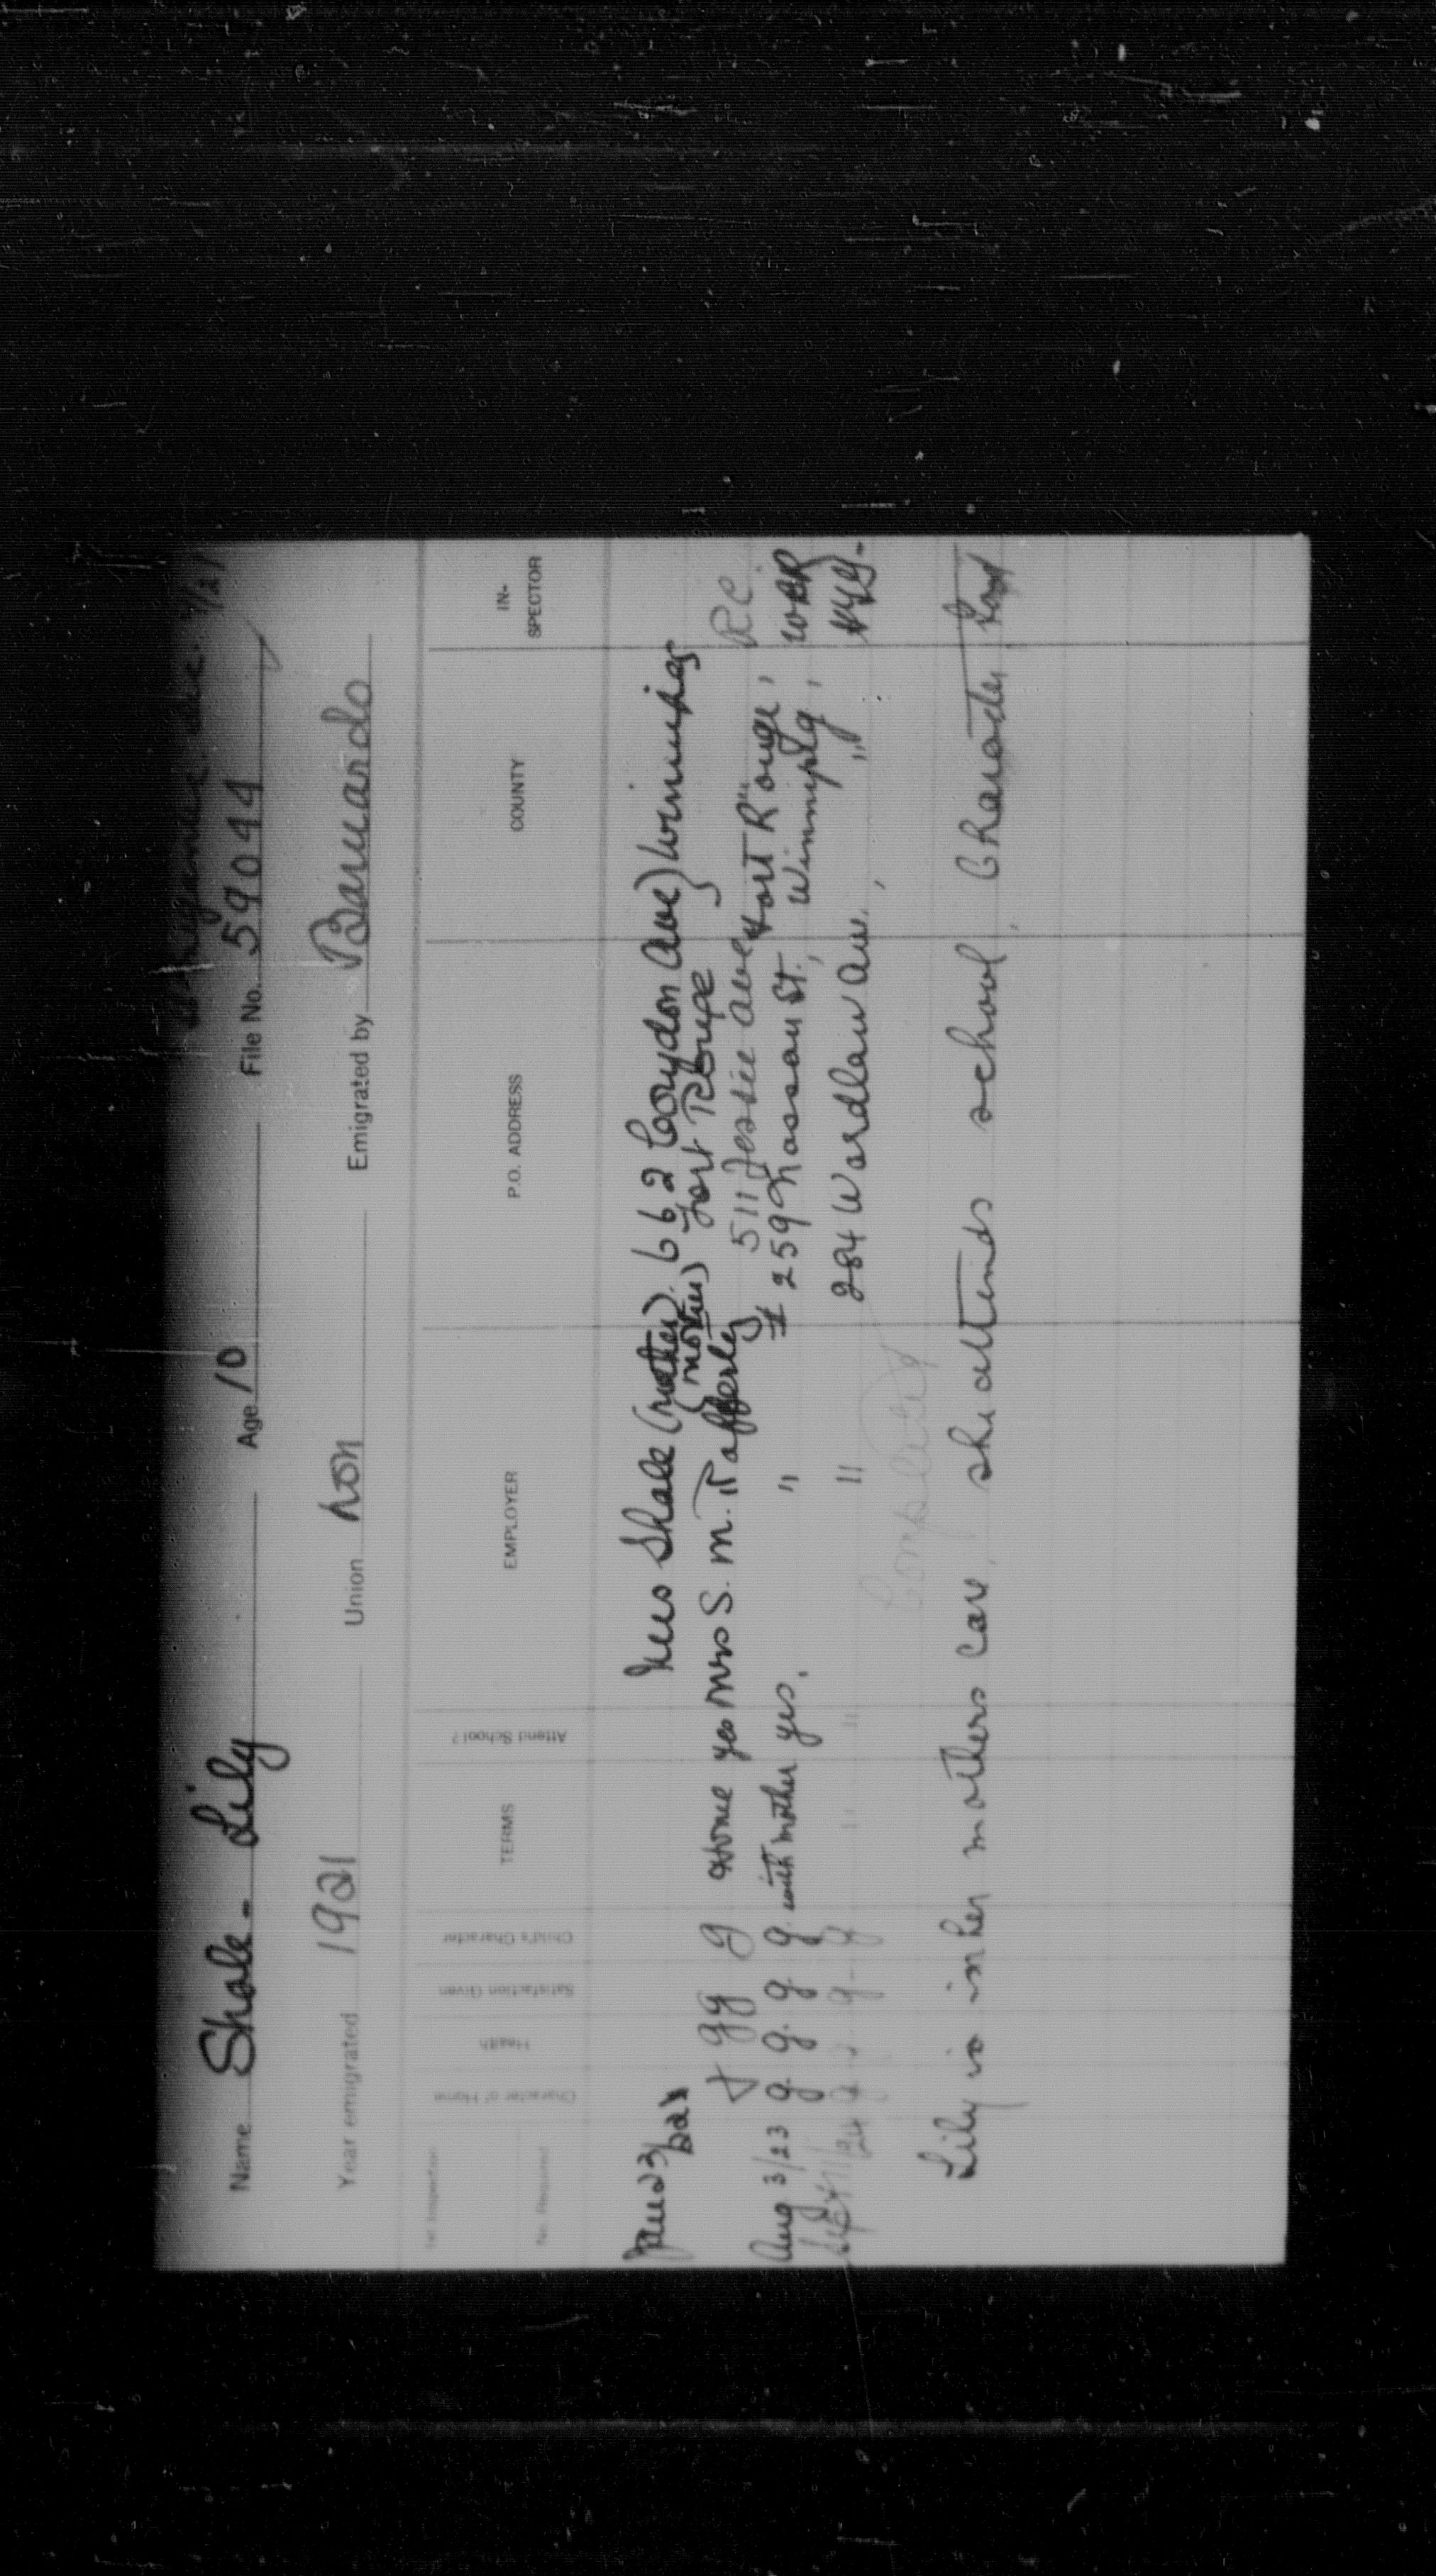 Name Shale - Lily Age 10 File No. 59044
Year emigrated 1921 Union non Emigrated by Barnardo
Character of Home Health Satisfaction Given Child's Character TERMS Attend School? EMPLOYER P.O. ADDRESS COUNTY IN-SPECTOR
No. Required
Mrs Shale (mother). 662 Corydon Ave) Winnipeg
Jan 23/22 (mother) Fort Rouge
f g g g Home yes Mrs S. M. Tafferly 511 Jessie Ave Fort Rouge, R.C.
Aug 3/23 g. g. g. g. with mother yes. " # 259 Nassau St., Winnipeg,
Sept 11/24 g g " " " 284 Wardlaw Ave. , "
Completed
Lily is in her mothers care, she attends school, Character Good